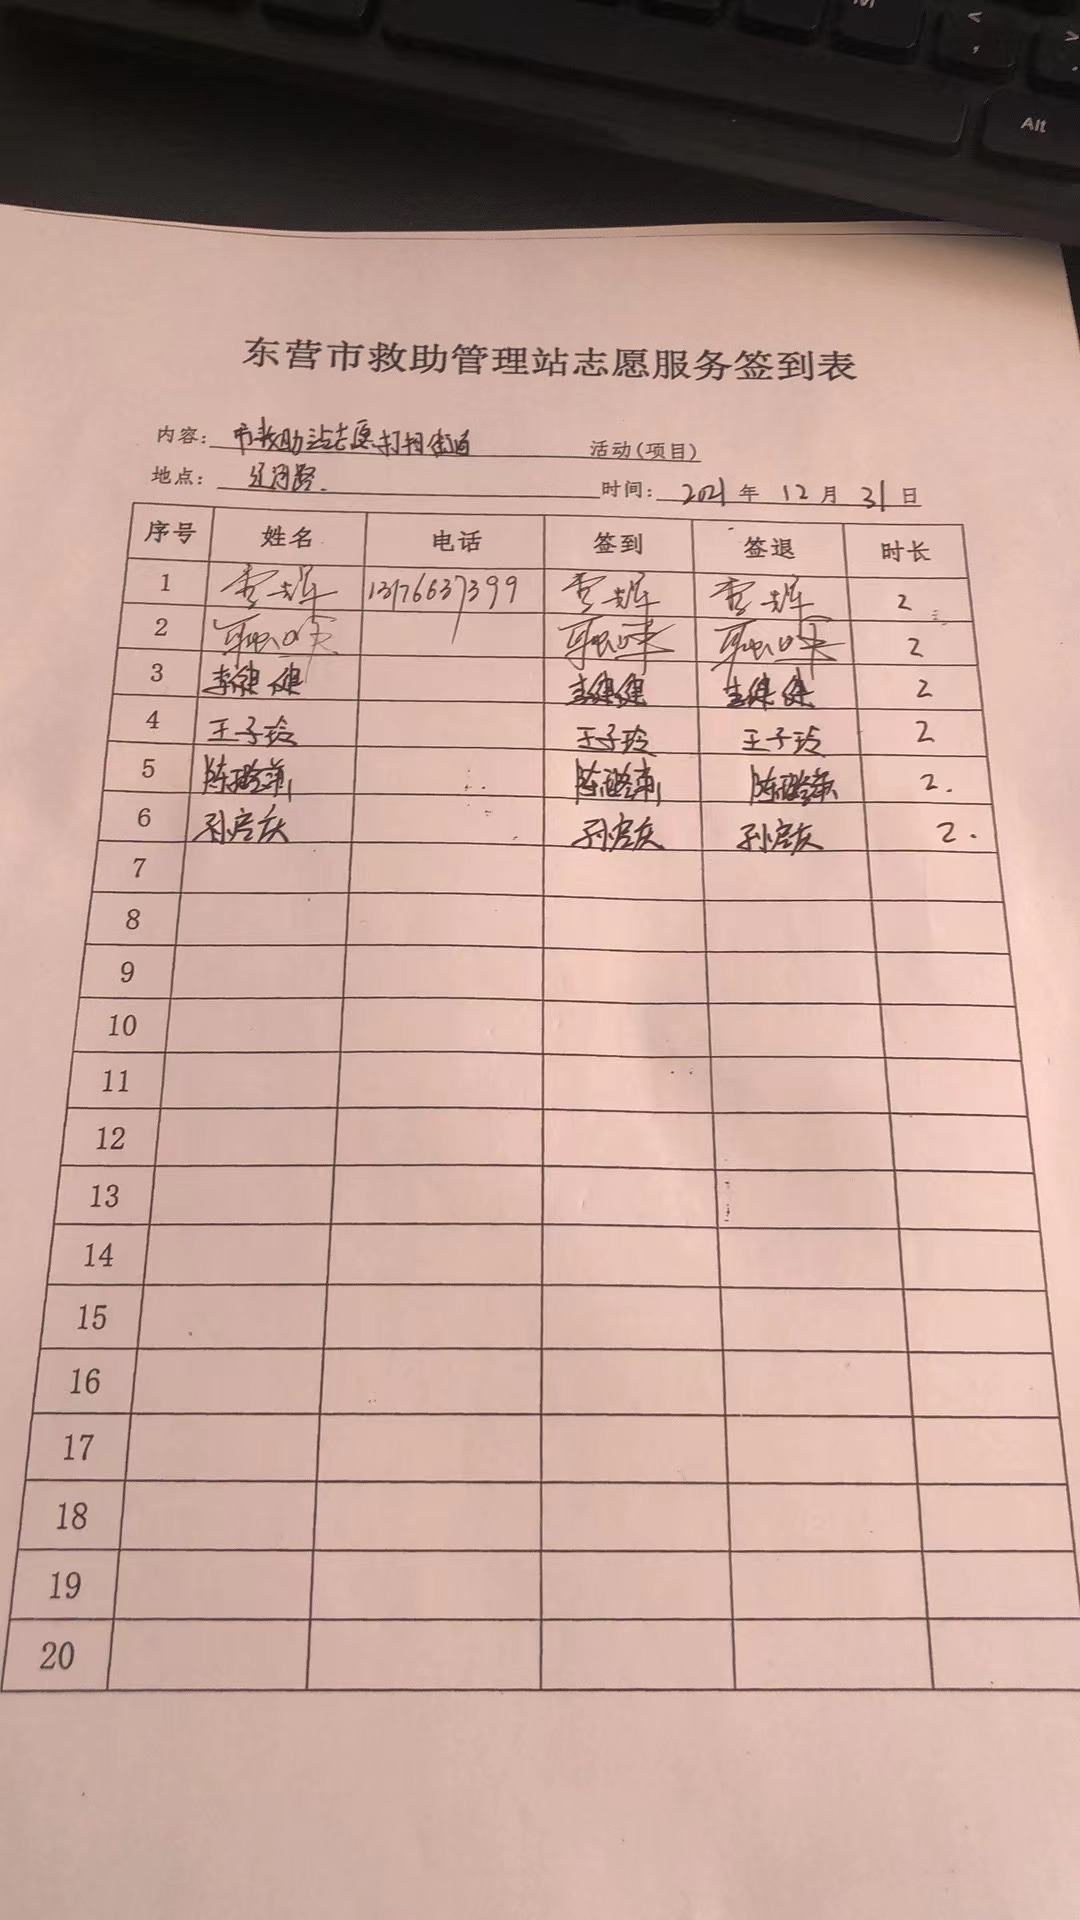 Alt
东营市救助管理站志愿服务签到表
内容：市救助站志愿打扫街道 活动(项目)
地点： 路. 时间：2021年12月31日
序号 姓名 电话 签到 签退 时长
1 13176637399 2
2 2
3 李健健 李健健 李健健 2
4 王子玲 王子玲 王子玲 2
5 陈 陈 陈 2.
6 孙 庆 孙 庆 孙 庆 2.
7
8
9
10
11
12
13
14
15
16
17
18
19
20